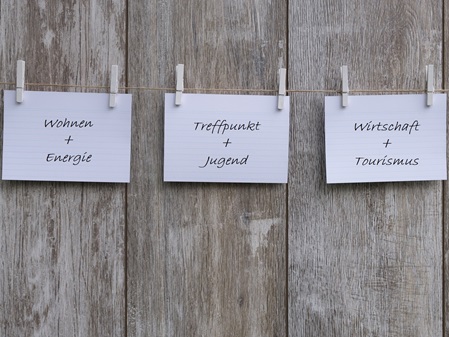 Wohnen
+
Energie
Treffpunkt
+
Jugend
Wirtschaft
+
Tourismus